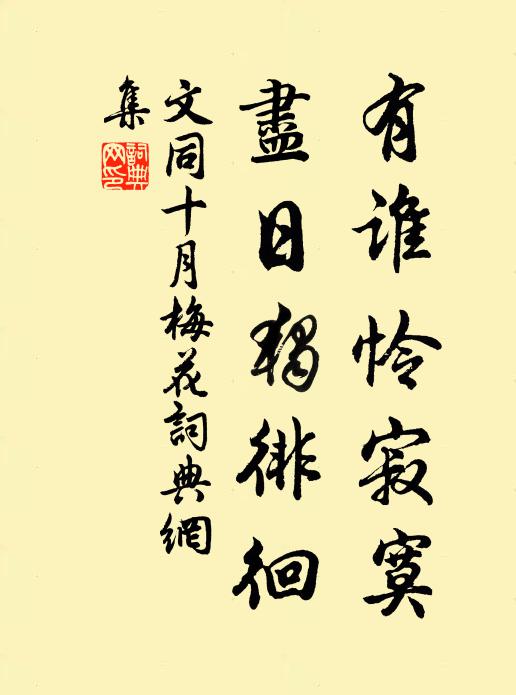 有誰怜寂寞
盡日獨徘徊
文同十月梅花詞典網
集
詞典网印